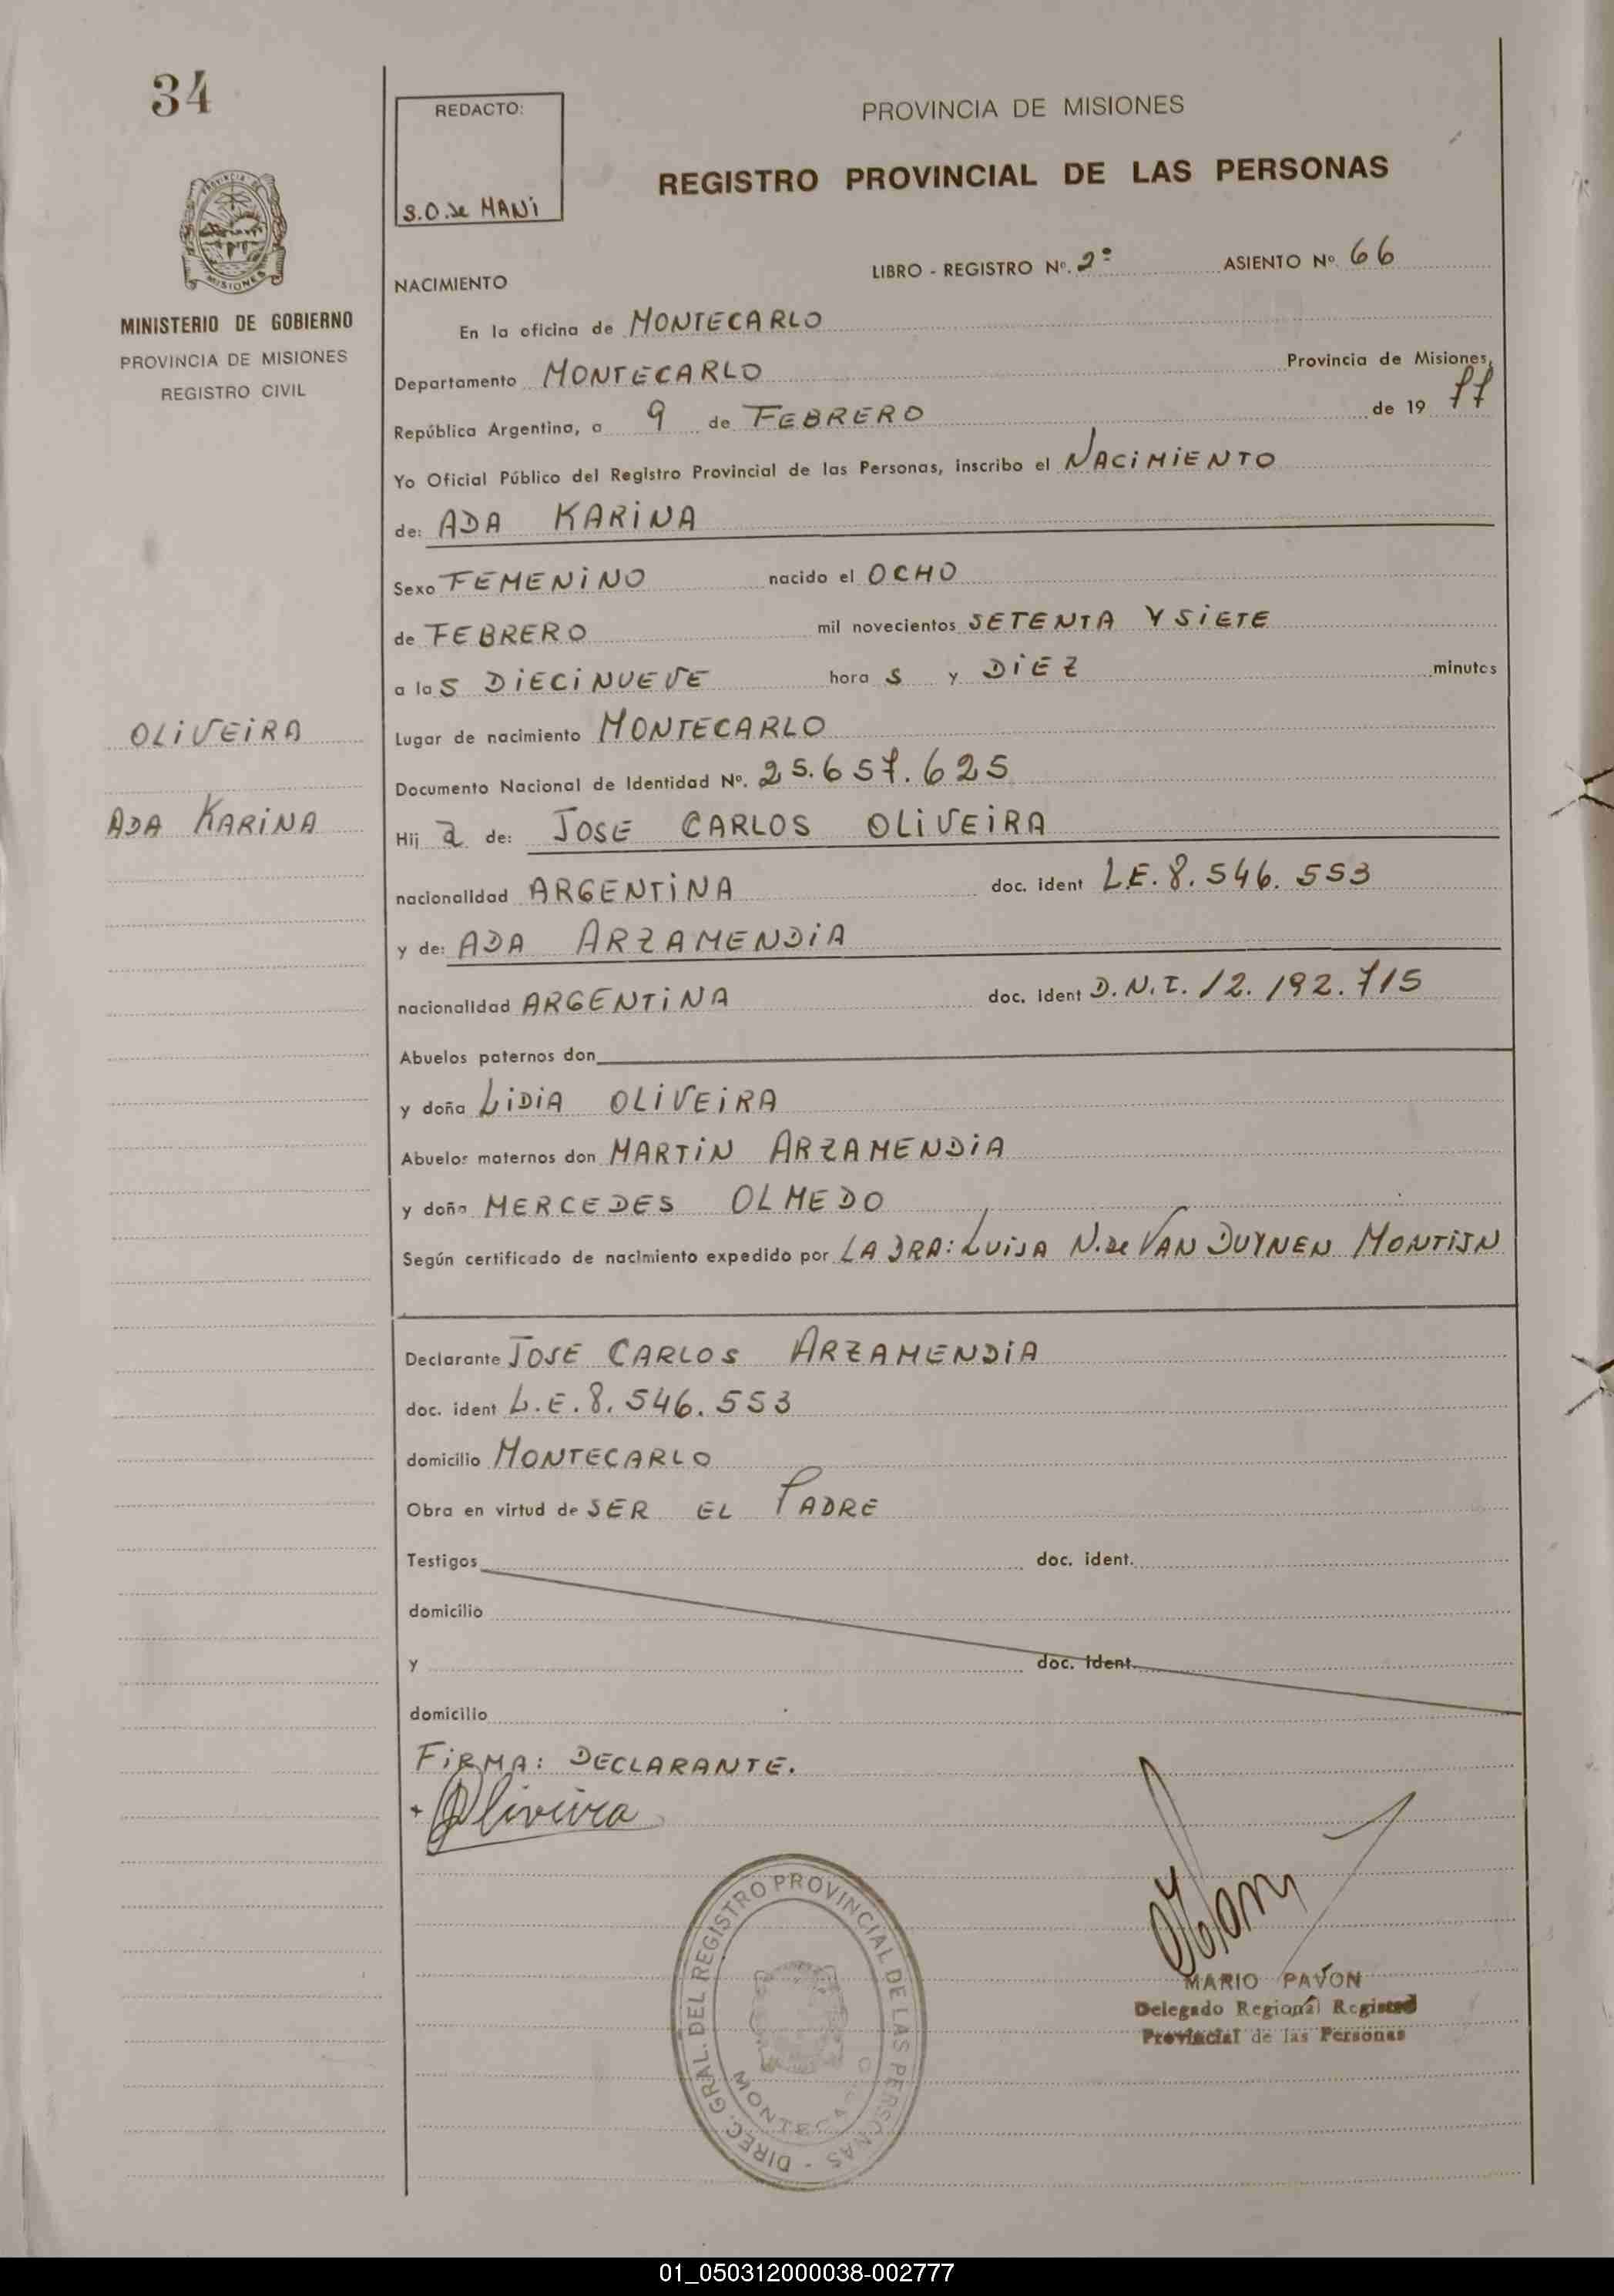 34
REDACTO:
S.O. de MANi
PROVINCIA DE MISIONES
REGISTRO PROVINCIAL DE LAS PERSONAS
PROVINCIA DE
MISIONES
MINISTERIO DE GOBIERNO
PROVINCIA DE MISIONES
REGISTRO CIVIL
NACIMIENTO
LIBRO - REGISTRO Nº. 2º ASIENTO Nº 66
En la oficina de MONTECARLO
Departamento MONTECARLO Provincia de Misiones,
República Argentina, a 9 de FEBRERO de 19 77
Yo Oficial Público del Registro Provincial de las Personas, inscribo el NACiMiENTO
de: ADA KARiNA
Sexo FEMENiNO nacido el OCHO
de FEBRERO mil novecientos SETENTA Y SiETE
a las DiECiNUEVE hora s y DiEZ minutos
OLiVEiRA
Lugar de nacimiento MONTECARLO
Documento Nacional de Identidad Nº. 25.657.625
ADA KARiNA
Hij a de: JOSE CARLOS OLiVEiRA
nacionalidad ARGENTiNA doc. ident L.E. 8.546.553
y de: ADA ARZAMENDiA
nacionalidad ARGENTiNA doc. ident D.N.I. 12.192.715
Abuelos paternos don
y doña LiDiA OLiVEiRA
Abuelos maternos don MARTiN ARZAMENDiA
y doña MERCEDES OLMEDO
Según certificado de nacimiento expedido por LA DRA: LUiSA N. de VAN DUYNEN MONTiJN
Declarante JOSE CARLOS ARZAMENDiA
doc. ident L.E. 8.546.553
domicilio MONTECARLO
Obra en virtud de SER EL PADRE
Testigos doc. ident.
domicilio
y doc. ident.
domicilio
FiRMA: DECLARANTE.
+ Oliveira
DIREC. GRAL. DEL REGISTRO PROVINCIAL DE LAS PERSONAS -
MONTECARLO
MARIO PAVON
Delegado Regional Registro
Provincial de las Personas
01_050312000038-002777